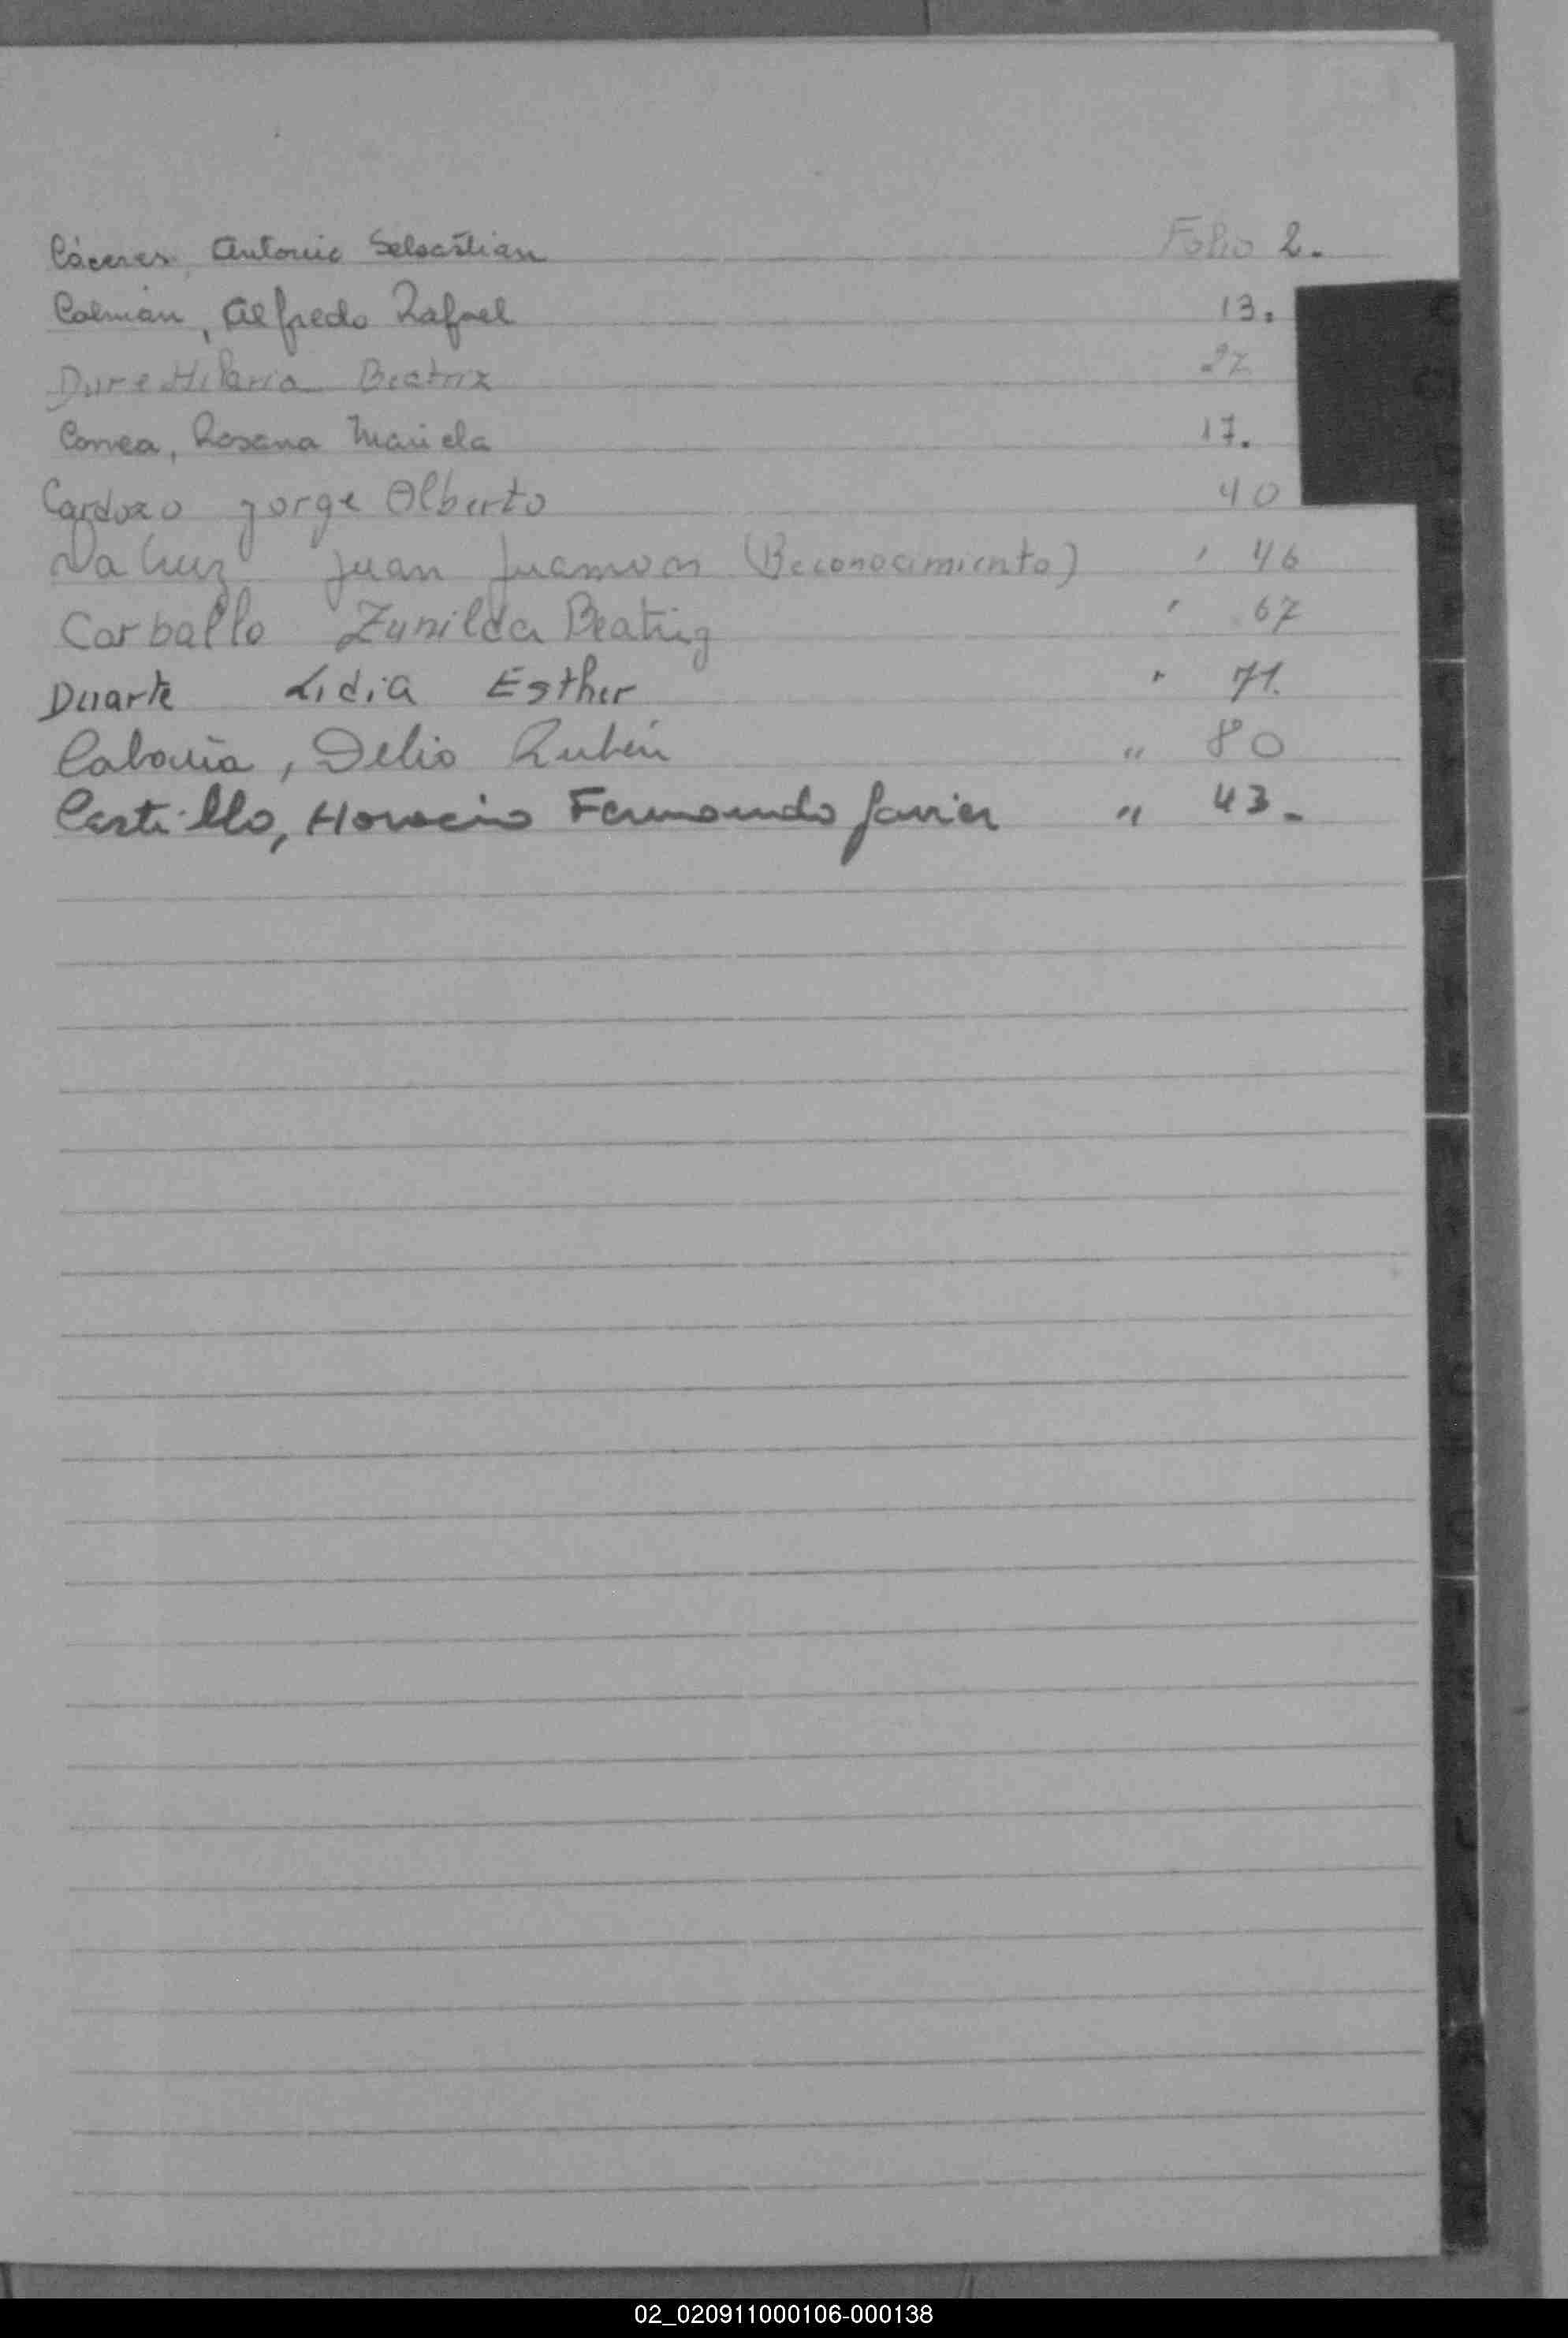 Cáceres, Antonio Sebastian Folio 2.
Colmán, Alfredo Rafael 13.
Dure Hilaria Beatriz 27
Correa, Rosana Mariela 17.
Cardozo Jorge Alberto 40
Da Cruz Juan (Reconocimiento) " 46
Carballo Zunilda Beatriz " 67
Duarte Lidia Esther " 71.
Cabaña, Delio Rubén " 80
Castillo, Horacio Fernando Javier " 43.-
02_020911000106-000138